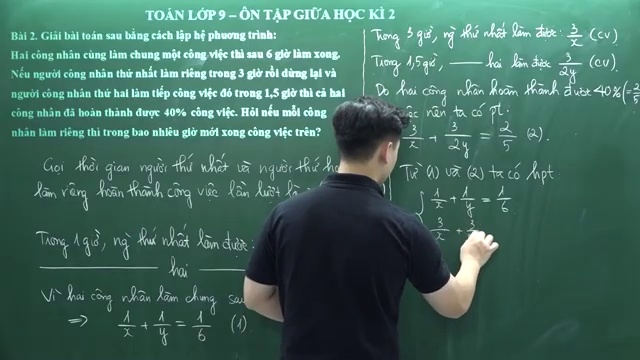 TOÁN LỚP 9 – ÔN TẬP GIỮA HỌC KÌ 2
Bài 2. Giải bài toán sau bằng cách lập hệ phương trình:
Hai công nhân cùng làm chung một công việc thì sau 6 giờ làm xong.
Nếu người công nhân thứ nhất làm riêng trong 3 giờ rồi dừng lại và
người công nhân thứ hai làm tiếp công việc đó trong 1,5 giờ thì cả hai
công nhân đã hoàn thành được 40% công việc. Hỏi nếu mỗi công
nhân làm riêng thì trong bao nhiêu giờ mới xong công việc trên?
Gọi thời gian người thứ nhất và người thứ
làm riêng hoàn thành công việc lần lượt là
Trong 1 giờ, ng thứ nhất làm được:
hai
Vì hai công nhân làm chung sau
=> 1/x + 1/y = 1/6 (1)
Trong 3 giờ, ng thứ nhất làm được: 3/x (cv)
Trong 1,5 giờ, hai làm được 3/2y (cv)
Do hai công nhân hoàn thành được 40% (=2/5
việc nên ta có pt:
3/x + 3/2y = 2/5 (2).
Từ (1) và (2) ta có hpt:
{ 1/x + 1/y = 1/6
3/x + 3